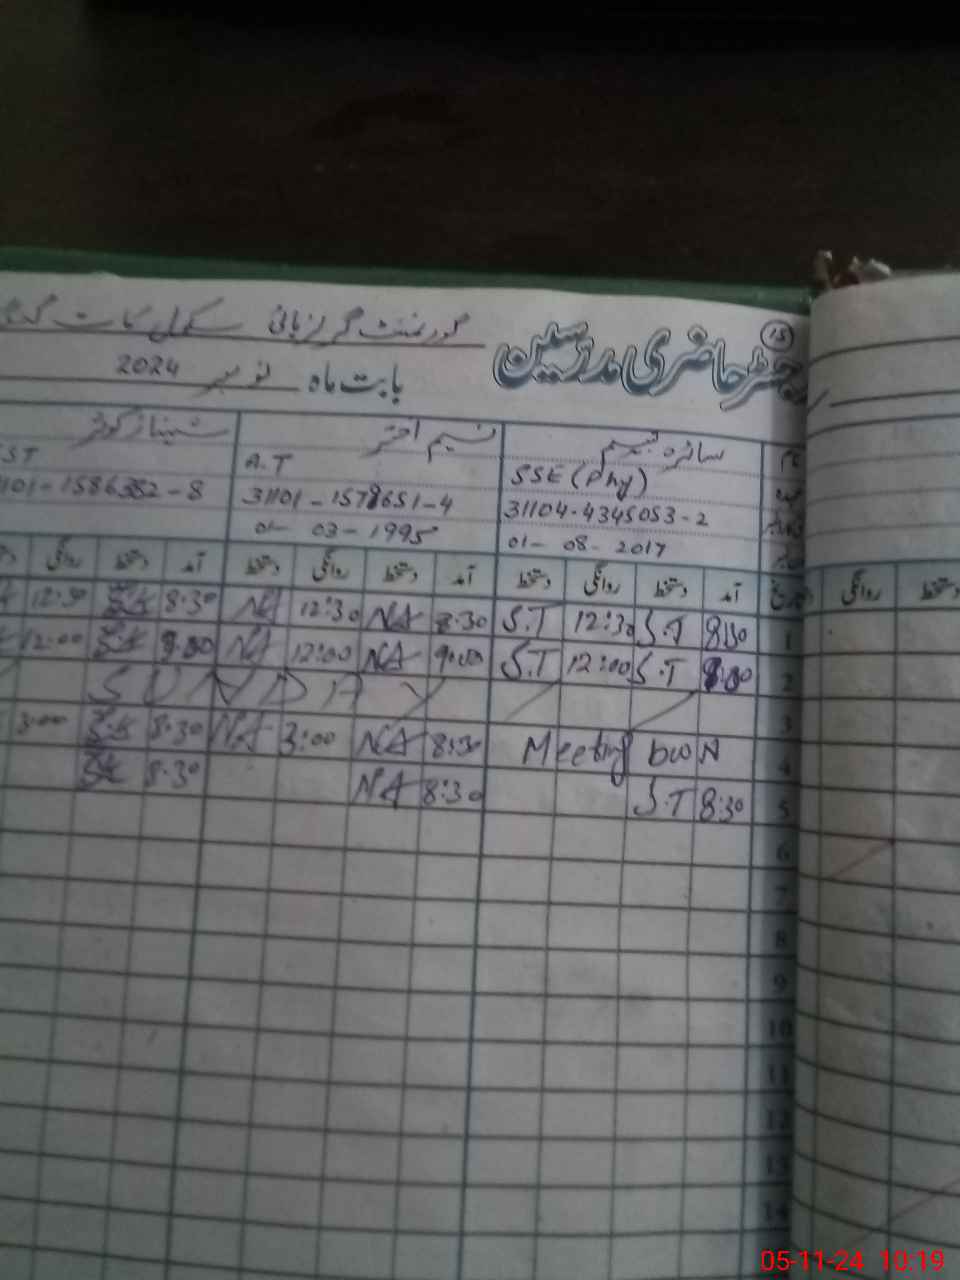 15
رجسٹر حاضری مدرسین
گورنمنٹ گرلز ہائی سکول
بابت ماہ نومبر 2024
سائرہ تبسم
SSE (Phy)
31104-4345053-2
01-08-2017
نسیم اختر
A.T
31101-1578651-4
01-03-1995
شہناز کوثر
ST
101-1586352-8
آمد دستخط روانگی دستخط آمد دستخط روانگی دستخط آمد دستخط روانگی
1 8:30 S.T 12:30 S.T 8:30 NA 12:30 NA 8:30 12:30
2 S.T 12:00 S.T NA 12:00 NA 12:00
3 SUNDAY
4 Meeting 8:30 NA 3:00 NA 8:30 3:00
5 8:30 S.T 8:30 NA 8:30
6
7
8
9
10
11
12
13
14
دستخط روانگی
05-11-24 10:19